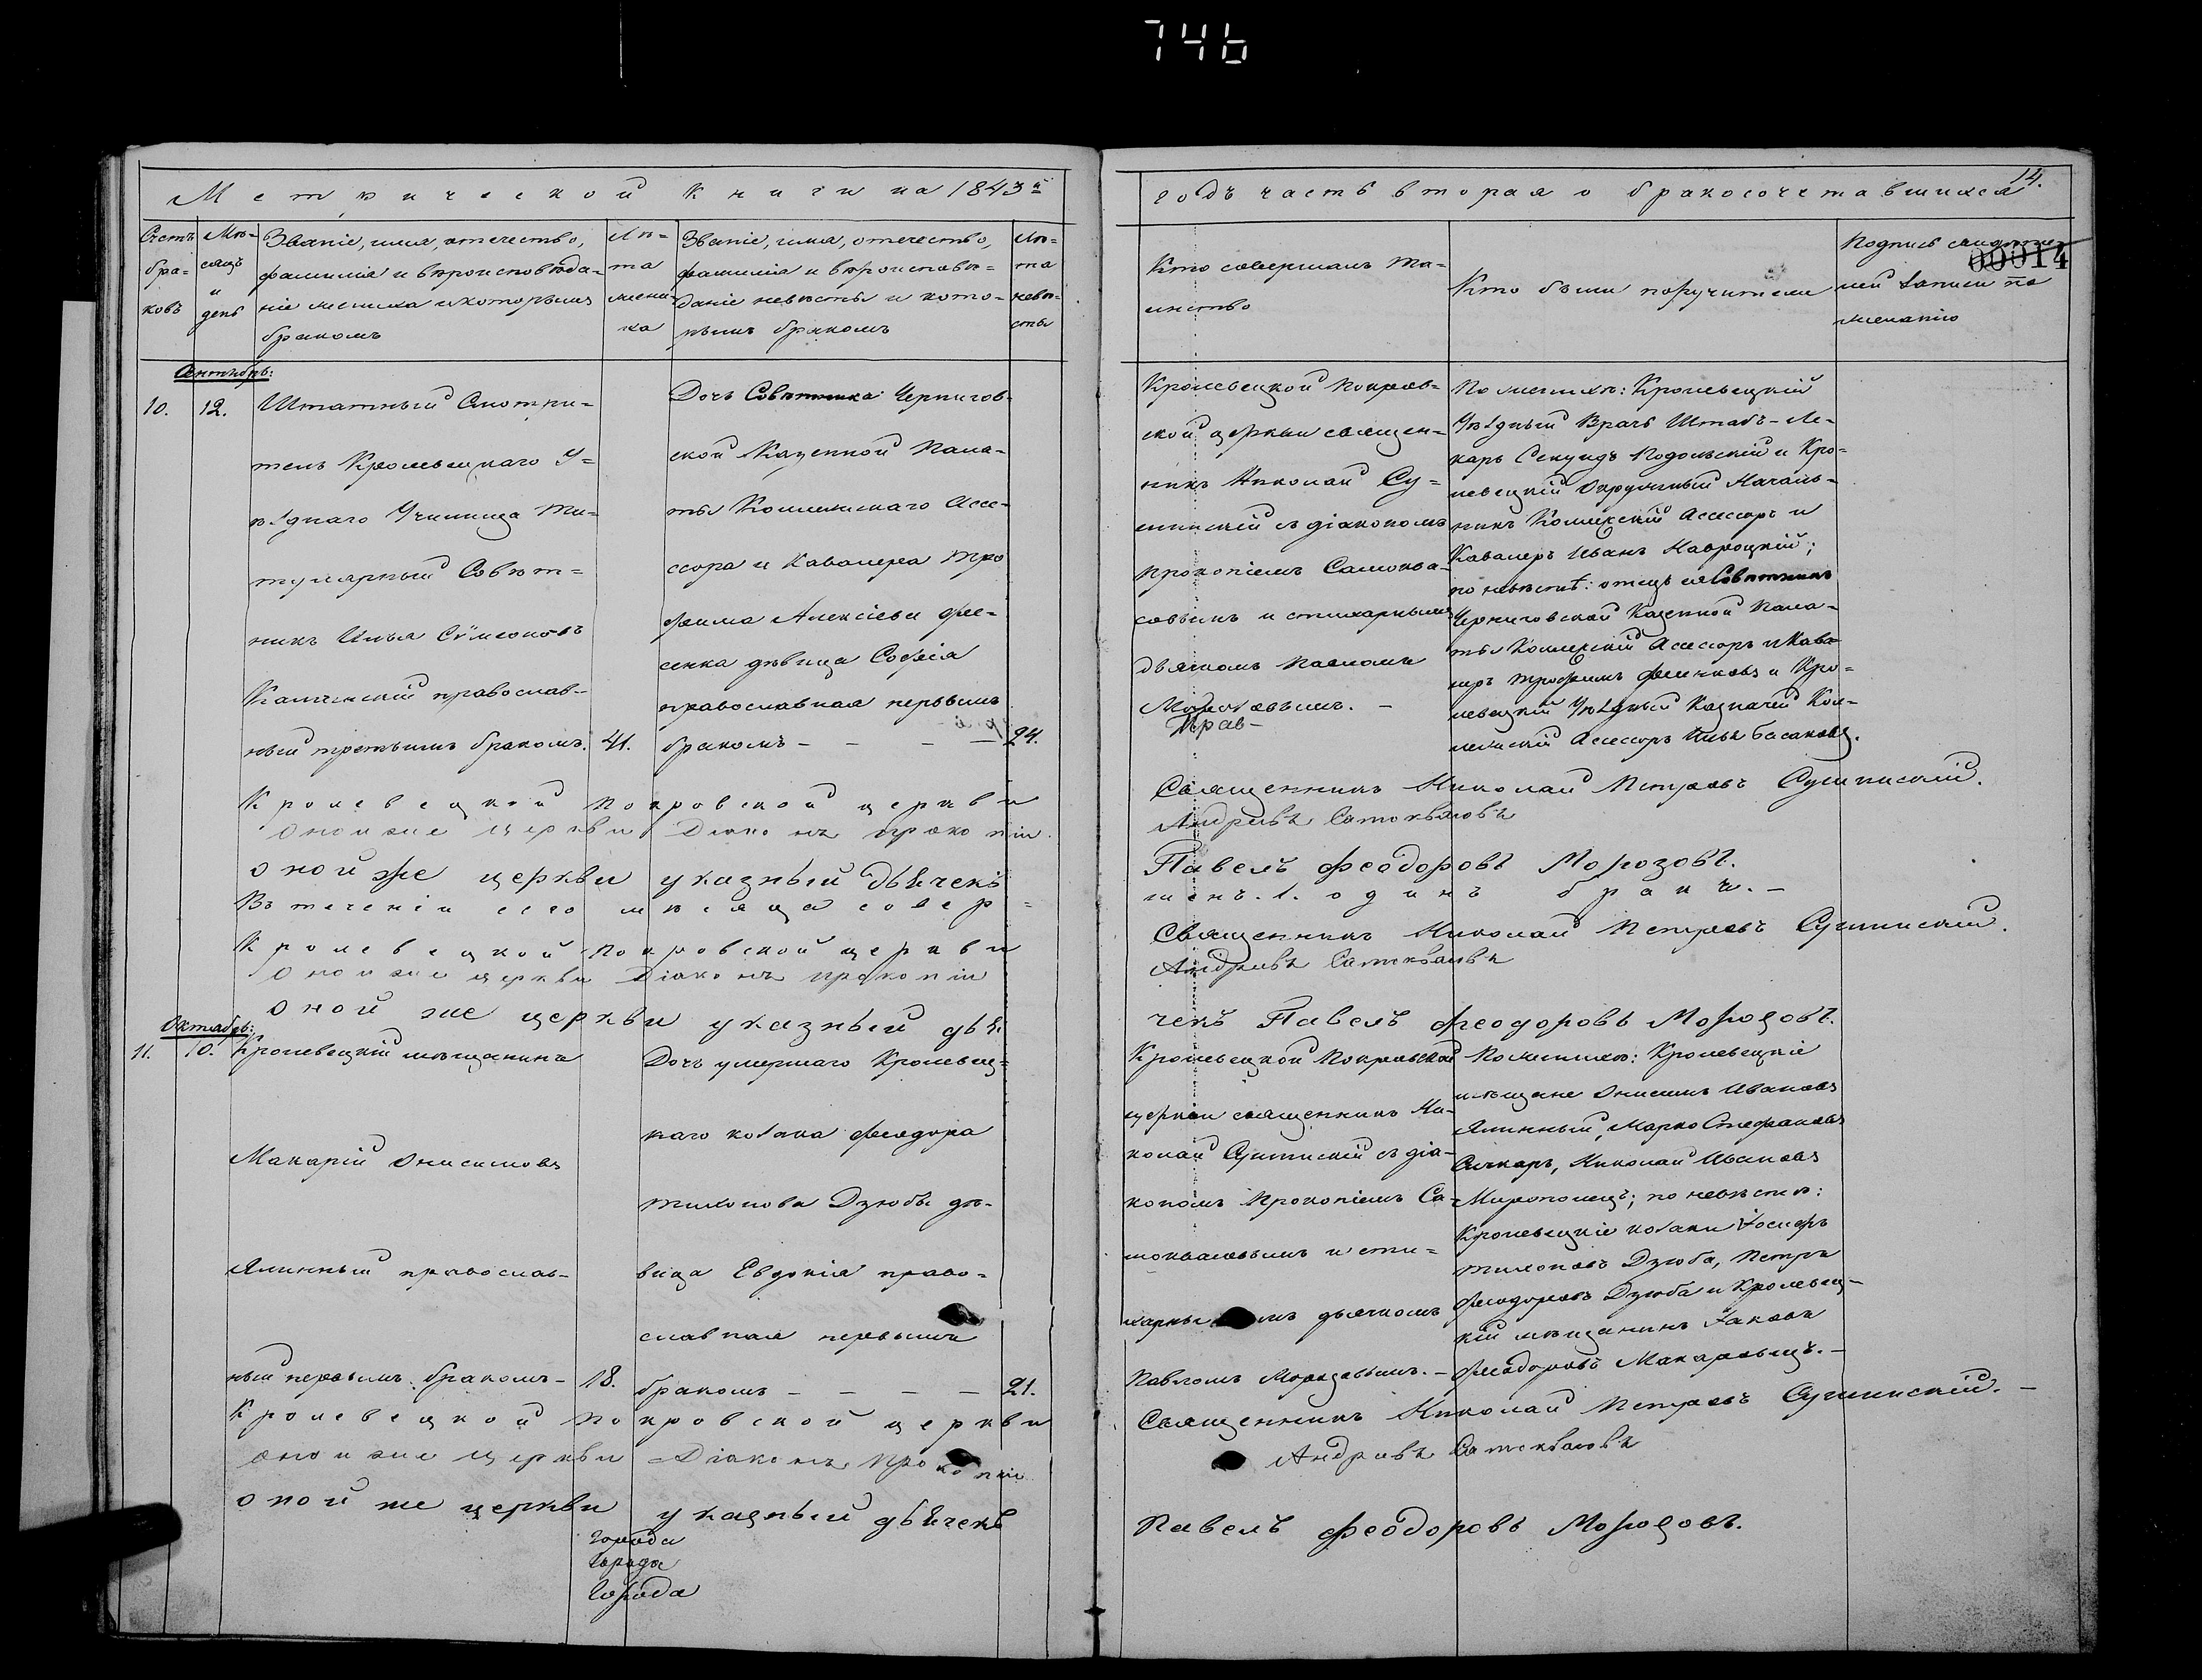 746
Метрической книги на 1843й
годъ часть вторая о бракосочетавшихся
14.
00014
Счетъ
бра-
ковъ
Мѣ-
сяцъ
и
день
Званіе, имя, отечество,
фамилія и вѣроисповѣда-
ніе жениха и которымъ
бракомъ
Лѣ-
та
жени-
ха
Званіе, имя, отечество,
фамилія и вѣроисповѣ-
даніе невѣсты и кото-
рымъ бракомъ
Лѣ-
та
невѣ-
сты
Кто совершалъ та-
инство
Кто были поручители
Подпись
лей записи по
желанію
10.
12.
Штатный Смотри-
тель Кролевецкаго У-
ѣзднаго Училища Ти-
тулярный Совѣт-
никъ Илья Сѵмеоновъ
православ-
ный третьимъ бракомъ.
41.
Дочь Совѣтника Чернигов-
ской Казенной Пала-
ты Коллежскаго Асе-
ссора и Кавалера Тро
фима Алексіева Фле-
нка дѣвица Софія
православная первымъ
бракомъ - - - -
24.
Кролевецкой Покров-
ской церкви священ-
никъ Николай Су-
шинскій съ діакономъ
Прокопіемъ Самоква-
совымъ и стихарнымъ
дьячкомъ Павломъ
Морозовымъ. -
По женихѣ: Кролевецкій
Уѣздный Врачъ Штабъ-Ле-
карь Секундъ Подольскій и Кро-
левецкій Окружный Началь-
никъ Коллежскій Асессоръ и
Кавалеръ Иванъ Навроцкій;
по невѣстѣ: отецъ ея Совѣтникъ
Черниговской Казенной Пала-
ты Коллежскій Асессоръ и Кава-
леръ Трофимъ и Кро-
левецкій Уѣздный Казначей Кол-
лежскій Асессоръ Илья
Кролевецкой Покровской церкви
Священникъ Николай Петровъ Сушинскій.
Оной же церкви Діаконъ Прокопій
Андреевъ Самоквасовъ
Оной же церкви указный дьячекъ
Павелъ Феодоровъ Морозовъ.
Въ теченіи сего мѣсяца совер-
шенъ. 1. одинъ бракъ. -
Кролевецкой Покровской церкви
Священникъ Николай Петровъ Сушинскій.
Оной же церкви Діаконъ Прокопій
Андреевъ Самоквасовъ
Оной же церкви указный дья
чекъ Павелъ Феодоровъ Морозовъ.
Октябрь:
11.
10.
Кролевецкій мѣщанинъ
Макарій Онисимовъ
Ялинный православ-
ный первымъ бракомъ -
18.
Дочь умершаго Кролевец-
каго козака Феодора
Тихонова Дзюбы дѣ-
вица Евдокія право-
славная первымъ
бракомъ - - - -
21.
Кролевецкой Покровской
церкви священникъ Ни-
колай Сушинскій съ діа-
кономъ Прокопіемъ Са-
моквасовымъ и сти-
харнымъ дьячкомъ
Павломъ Морозовымъ. -
По женихѣ: Кролевецкіе
мѣщане Онисимъ Ивановъ
Ялинный, Марко Стефановъ
Сичкарь, Николай Ивановъ
Миропольцъ; по невѣстѣ:
Кролевецкіе козаки Іосифъ
Тихоновъ Дзюба, Петръ
Феодоровъ Дзюба и Кролевец-
кій мѣщанинъ Іаковъ
Феодоровъ
Кролевецкой Покровской церкви
Священникъ Николай Петровъ Сушинскій. -
Оной же церкви Діаконъ Прокопій
Андреевъ Самоквасовъ
Оной же церкви указный дьячекъ
Павелъ Феодоровъ Морозовъ.
города
города
города